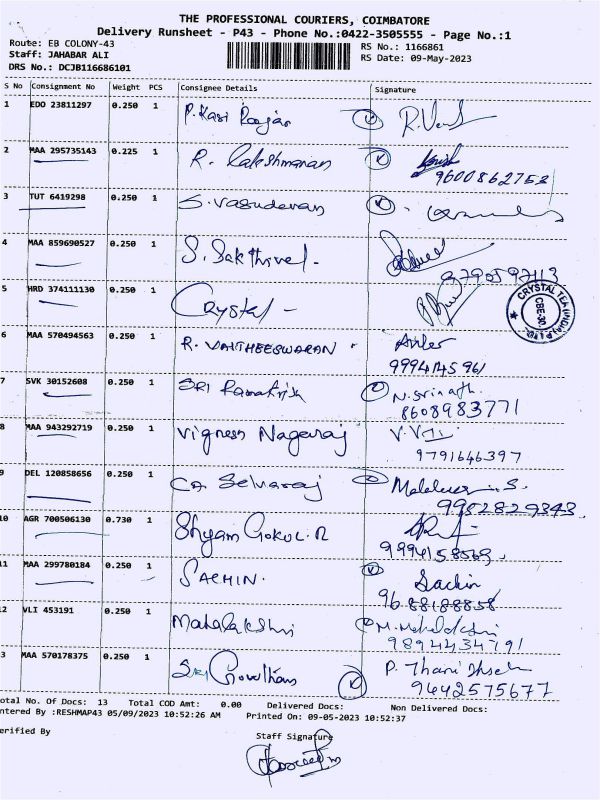 THE PROFESSIONAL COURIERS, COIMBATORE
Delivery Runsheet - P43 - Phone No.:0422-3505555 - Page No.:1
Route: EB COLONY-43
RS No.: 1166861
Staff: JAHABAR ALI
RS Date: 09-May-2023
DRS No.: DCJB116686101
S No Consignment No Weight PCS Consignee Details Signature
1 EDO 23811297 0.250 1 P. Kasi Raajan
2 MAA 295735143 0.225 1 R. Lakshmanan
9600862753
3 TUT 6419298 0.250 1 S. Vasudevan
4 MAA 859690527 0.250 1 S. Sakthivel.
5 HRD 374111130 0.250 1 Crystal -
CRYSTAL TEA (INDIA)
CBE-30.
6 MAA 570494563 0.250 1 R. VAITHEESWARAN
7 SVK 30152608 0.250 1 Sri Ramakrish N. Srinath.
8608983771
8 MAA 943292719 0.250 1 Vignesh Nagaraj
9791646397
9 DEL 120858656 0.250 1 CA Selvaraj
9952829343
10 AGR 700506130 0.730 1 Shyam Gokul. R
9994158569
11 MAA 299780184 0.250 1 SACHIN. Sachin
9688188858
12 VLI 453191 0.250 1 Mahalakshmi
9894434791
3 MAA 570178375 0.250 1 Sri Gowtham
9442575677
otal No. Of Docs: 13 Total COD Amt: 0.00 Delivered Docs: Non Delivered Docs:
ntered By :RESHMAP43 05/09/2023 10:52:26 AM Printed On: 09-05-2023 10:52:37
erified By
Staff Signature